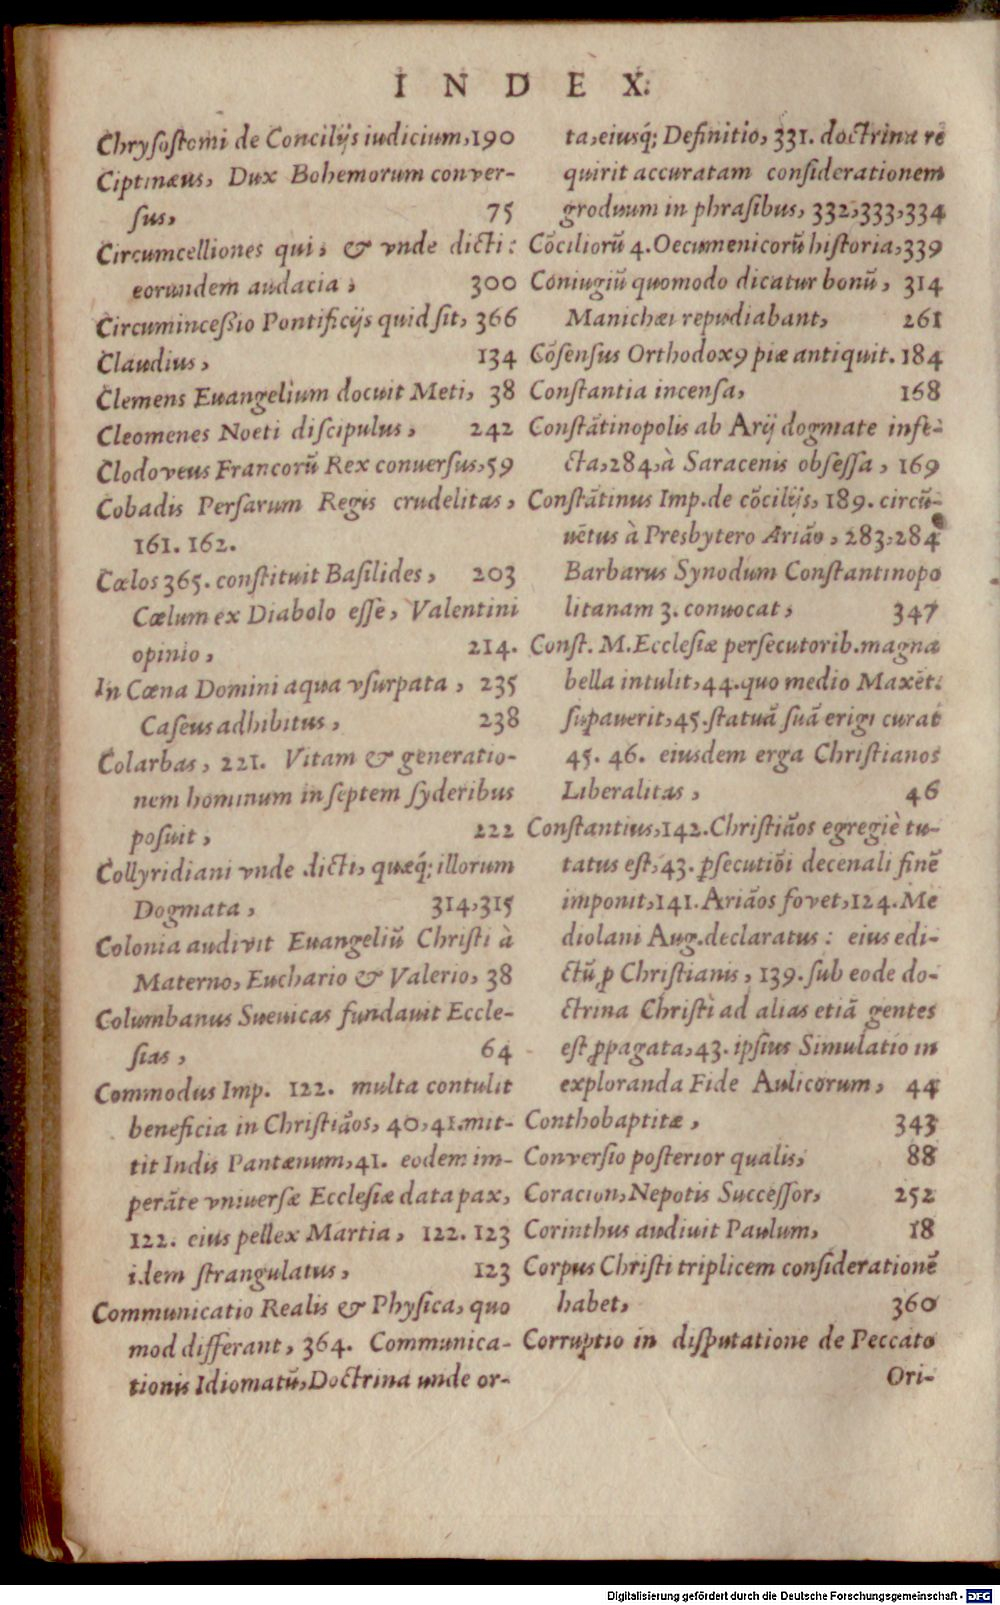 INDEX.
Chrysostomi de Concilijs iudicium, 190
Ciptinæus, Dux Bohemorum conver-
sus, 75
Circumcelliones qui, & vnde dicti:
eorundem audacia, 300
Circumincessio Pontificijs quid sit, 366
Claudius, 134
Clemens Euangelium docuit Meti, 38
Cleomenes Noeti discipulus, 242
Clodoveus Francorũ Rex conuersus, 59
Cobadis Persarum Regis crudelitas,
161. 162.
Cœlos 365. constituit Basilides, 203
Cœlum ex Diabolo esse, Valentini
opinio, 214.
In Cœna Domini aqua vsurpata, 235
Caseus adhibitus, 238
Colarbas, 221. Vitam & generatio-
nem hominum in septem syderibus
posuit, 222
Collyridiani vnde dicti, quæq́; illorum
Dogmata, 314, 315
Colonia audivit Euangeliũ Christi à
Materno, Euchario & Valerio, 38
Columbanus Suevicas fundavit Eccle-
sias, 64
Commodus Imp. 122. multa contulit
beneficia in Christiãos, 40, 41. mit-
tit Indis Pantænum, 41. eodem im-
perãte vniuersæ Ecclesiæ data pax,
122. eius pellex Martia, 122. 123
idem strangulatus, 123
Communicatio Realis & Physica, quo
mod differant, 364. Communica-
tionis Idiomatũ, Doctrina unde or-
ta, eiusq́; Definitio, 331. doctrina re
quirit accuratam considerationem
groduum in phrasibus, 332, 333, 334
Cõciliorũ 4. Oecumenicorũ historia, 339
Coniugiũ quomodo dicatur bonũ, 314
Manichæi repudiabant, 261
Cõsensus Orthodoxꝯ piæ antiquit. 184
Constantia incensa, 168
Constãtinopolis ab Arij dogmate infe-
cta, 284, à Saracenis obsessa, 169
Constãtinus Imp. de cõcilijs, 189. circũ-
uẽtus à Presbytero Arião, 283, 284
Barbarus Synodum Constantinopo
litanam 3. conuocat, 347
Const. M. Ecclesiæ persecutorib. magna
bella intulit, 44. quo medio Maxẽt.
supauerit, 45. statuã suã erigi curat
45. 46. eiusdem erga Christianos
Liberalitas, 46
Constantius, 142. Christiãos egregiè tu-
tatus est, 43. ꝑsecutiõi decenali finẽ
imponit, 141. Ariãos fovet, 124. Me
diolani Aug. declaratus: eius edi-
ctũ ꝓ Christianis, 139. sub eode do-
ctrina Christi ad alias etiã gentes
est ꝓpagata, 43. ipsius Simulatio in
exploranda Fide Aulicorum, 44
Conthobaptitæ, 343
Conversio posterior qualis, 88
Coracion, Nepotis Successor, 252
Corinthus audiuit Paulum, 18
Corpus Christi triplicem considerationẽ
habet, 360
Corruptio in disputatione de Peccato
Ori-
Digitalisierung gefördert durch die Deutsche Forschungsgemeinschaft - DFG